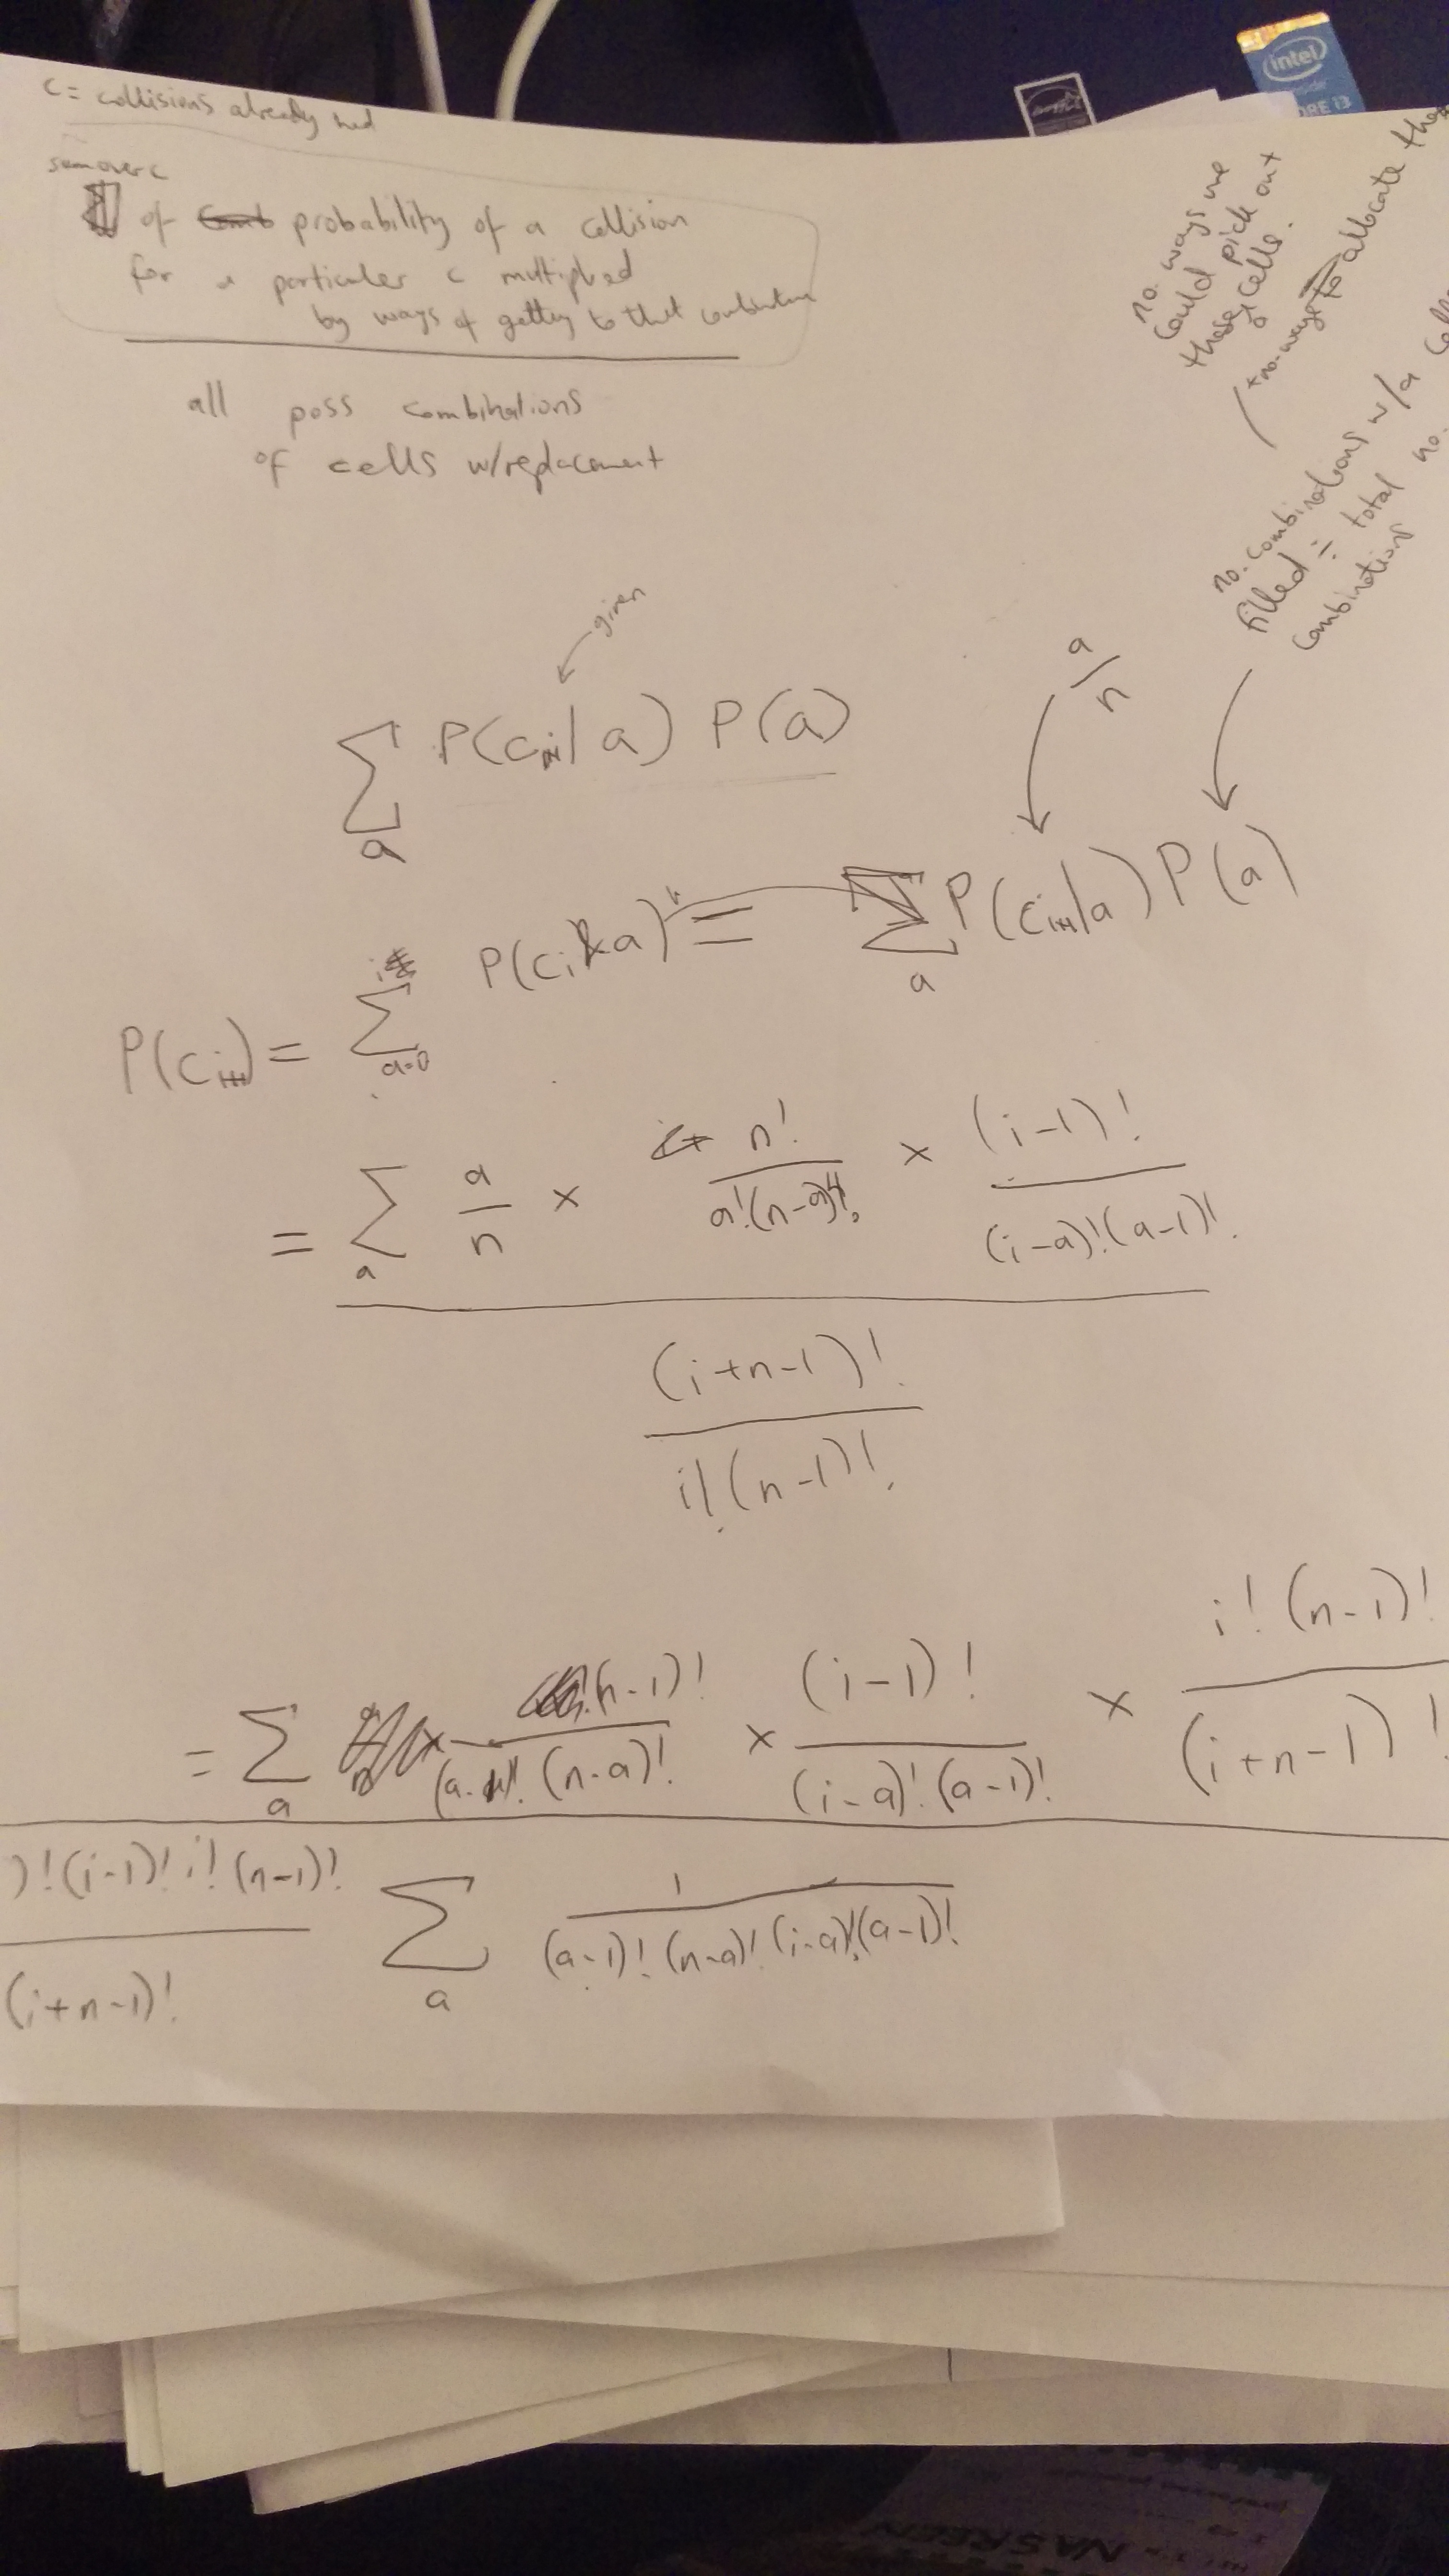 c = collisions already had
sum over c
of probability of a collision
for a particular c multiplied
by ways of getting to that combination
all poss combinations
of cells w/replacement
intel
inside
CORE i3
no. ways we
could pick out
those cells.
* no. ways to allocate
no. combinations w/a
filled ÷ total no.
combinations
given
∑_a P(c_{i+1} | a) P(a)
a/n
P(c_{i+1}) = ∑_{a=0}^{i} P(c_i & a) = ∑_a P(c_{i+1}|a) P(a)
= ∑_a a/n × n!/(a!(n-a)!) × (i-1)!/((i-a)!(a-1)!)
(i+n-1)!
i!(n-1)!
= ∑_a (n-1)!/((a-1)!(n-a)!) × (i-1)!/((i-a)!(a-1)!) × i!(n-1)!/(i+n-1)!
)!(i-1)! i! (n-1)!/(i+n-1)! ∑_a 1/((a-1)!(n-a)!(i-a)!(a-1)!)
NASREEN